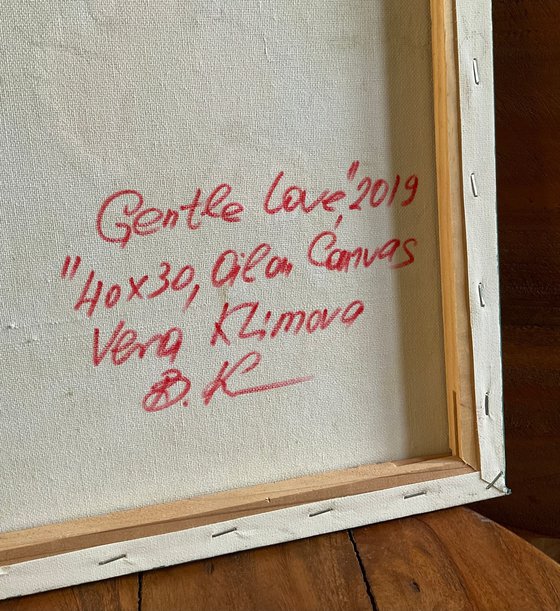 Gentle Love," 2019
"40x30, Oil on Canvas
Vera Klimova
B. K